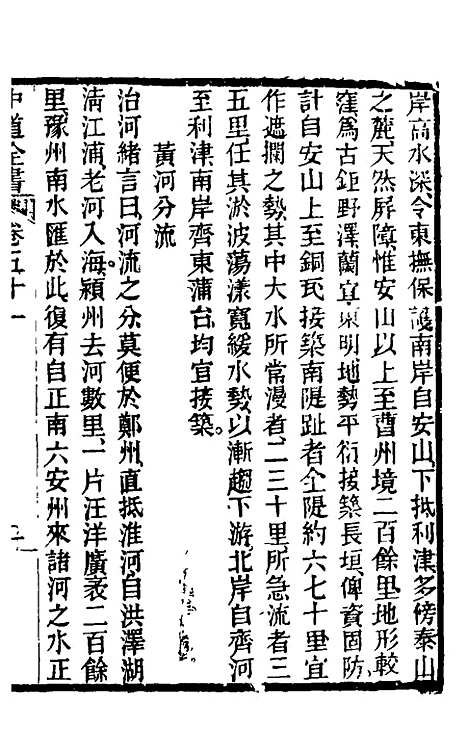 岸高水深、令東撫保護南岸自安山、下抵利津、多傍泰山
之麓、天然屏障、惟安山以上至曹州境二百餘里、地形較
窪、爲古鉅野澤、蘭宜東明、地勢平衍、接築長垣、俾資固防、
計自安山上至銅瓦接築南隄趾者、仝隄約六七十里、宜
作遮攔之勢、其中大水所常漫者、二三十里、所急流者三
五里、任其淤波蕩漾、寬緩水勢、以漸趨下游、北岸自齊河
至利津、南岸齊東蒲台、均宜接築。
黃河分流
治河緒言曰、河流之分、莫便於鄭州、直抵淮河、自洪澤湖
淸江浦、老河入海。潁州去河數里、一片汪洋、廣袤二百餘
里、豫州南水匯於此、復有自正南六安州來諸河之水、正
中道全書 卷五十一